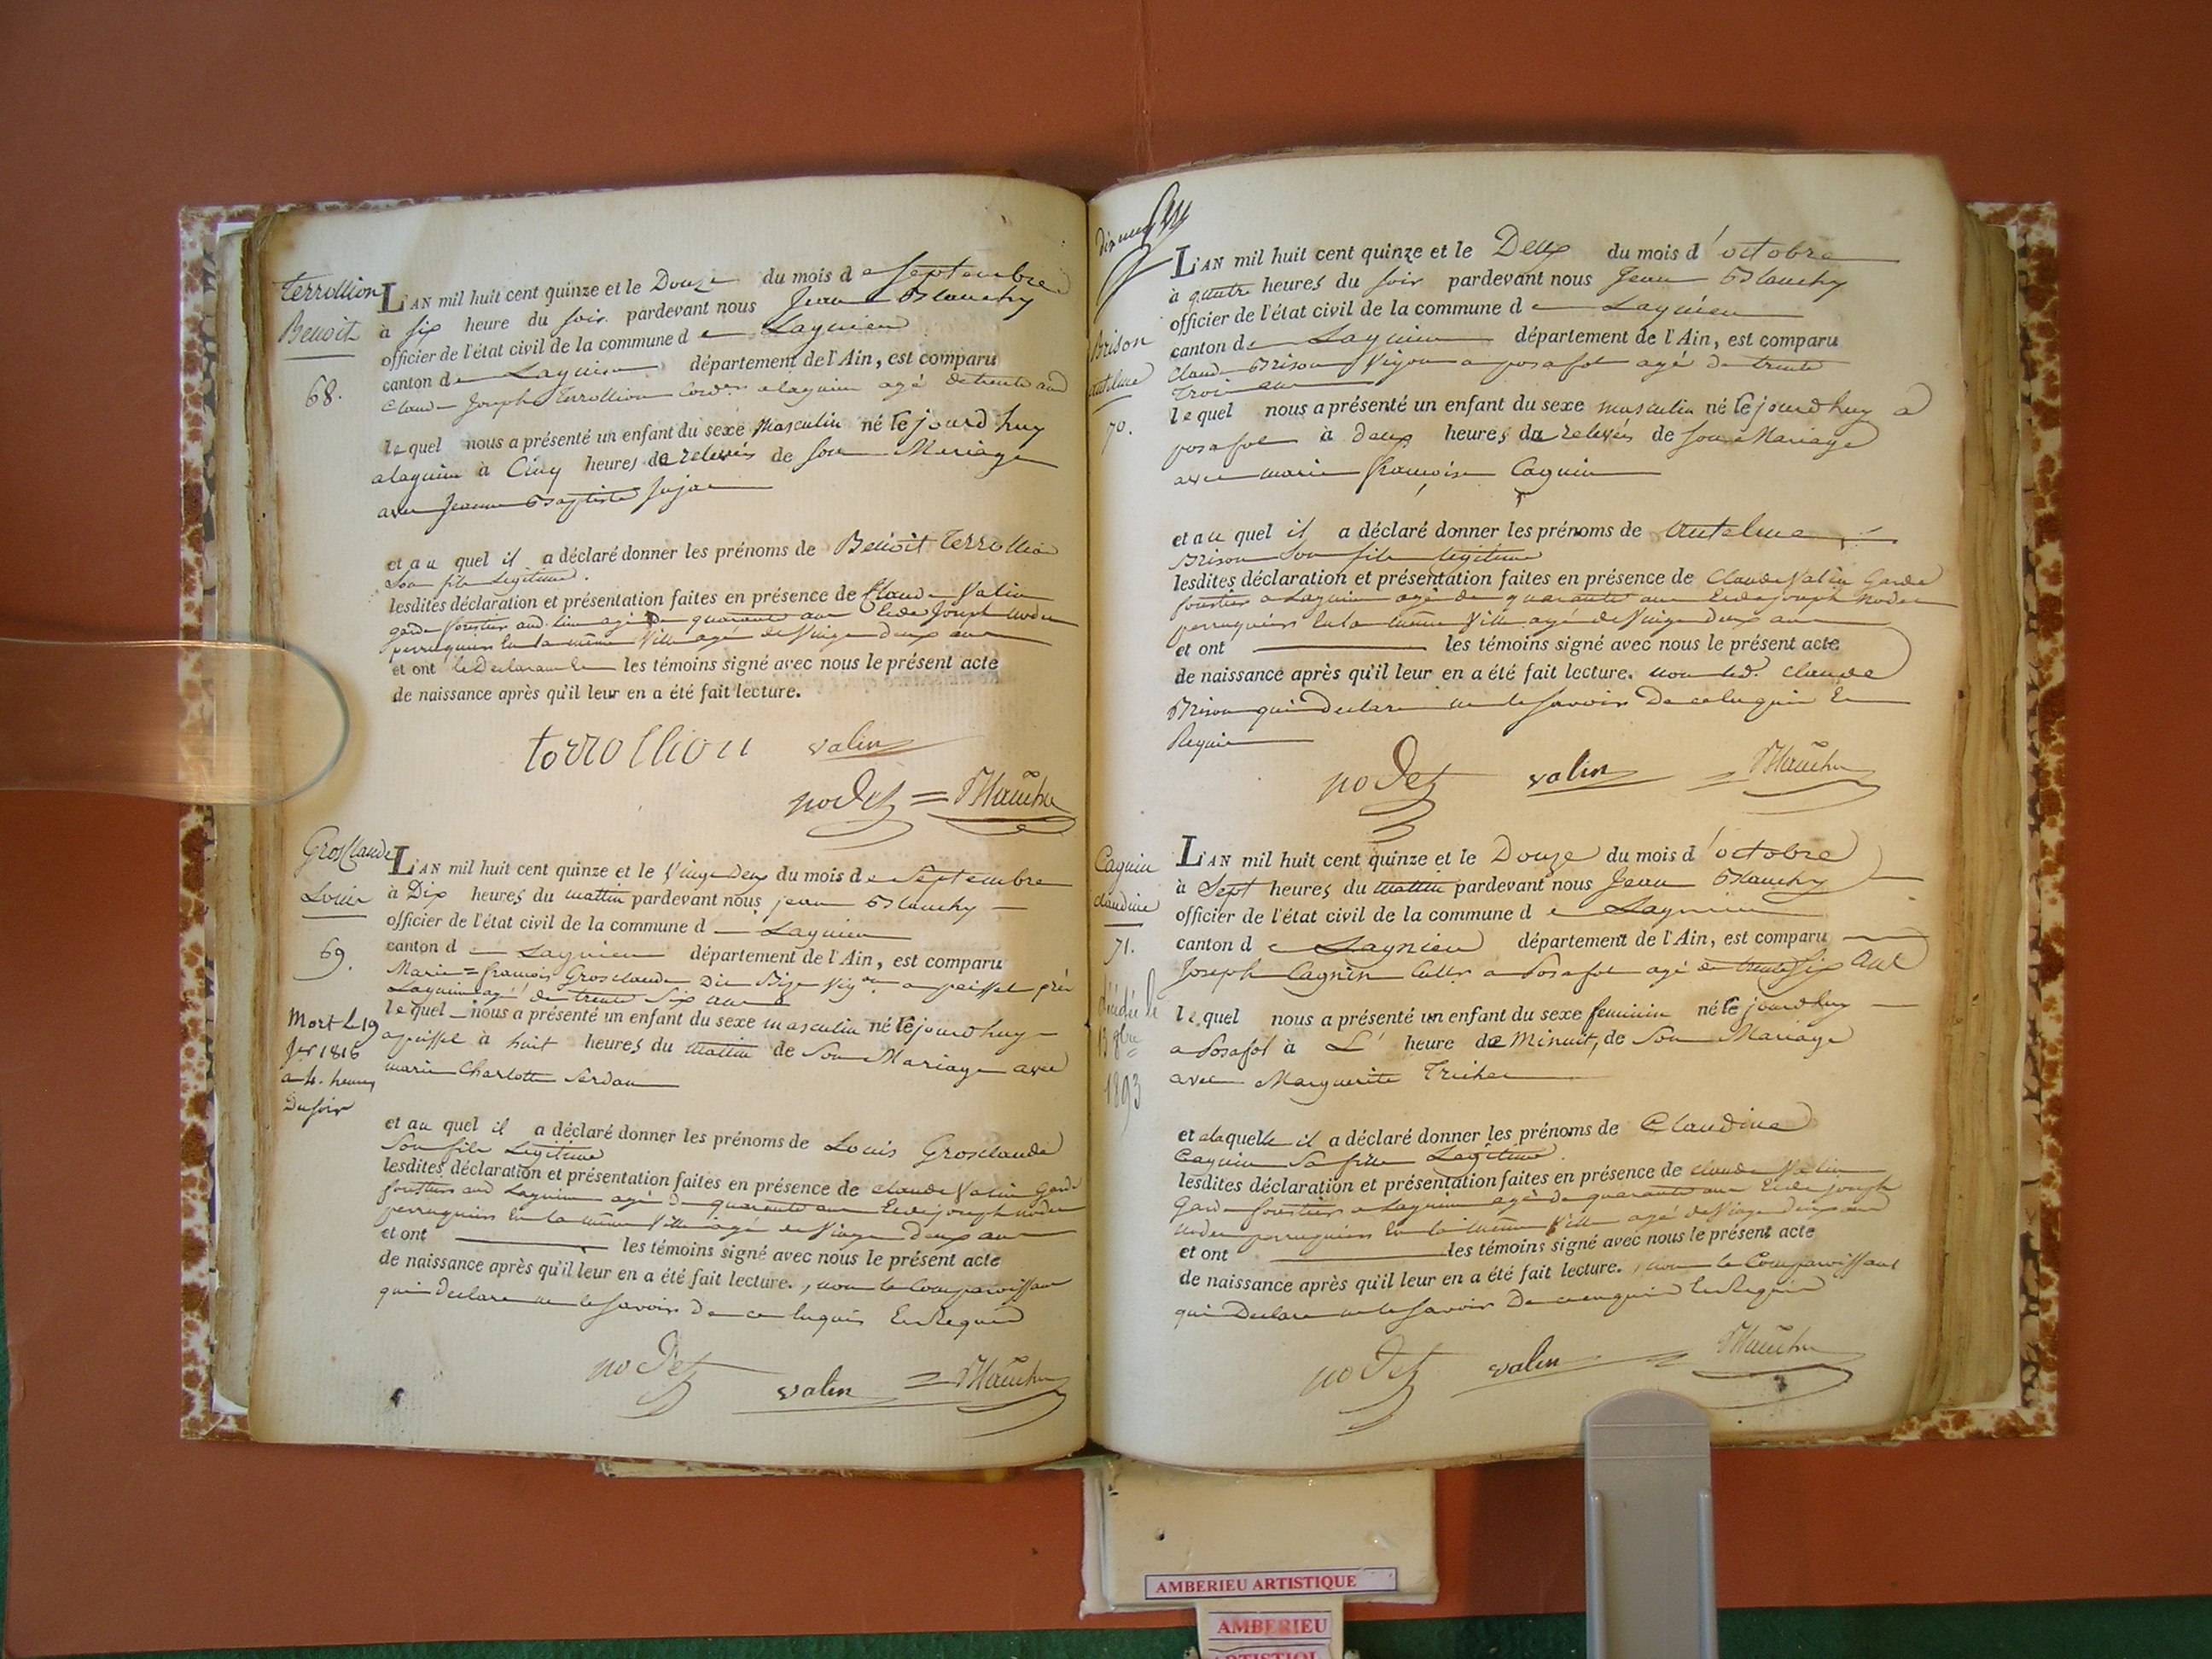 Terrollion
Benoit
68.
L'AN mil huit cent quinze et le Douze du mois de Septembre
à Six heure du soir pardevant nous Jean Blanchy
officier de l'état civil de la commune de Lagnieu
canton de Lagnieu département de l'Ain, est comparu
Claude Joseph Terrollion alagnieu agé de trente ans
lequel nous a présenté un enfant du sexe Masculin né le jourdhuy
alagnieu à Cinq heures de relevées de son Mariage
avec Jeanne Baptiste
et au quel il a déclaré donner les prénoms de Benoit Terrollion
Son fils Legitime.
lesdites déclaration et présentation faites en présence de Claude Valin
garde forestier agé de quarante ans et de Joseph Nodet
perruquier en la même Ville agé de Vingt deux ans
et ont le Declarant les témoins signé avec nous le présent acte
de naissance après qu'il leur en a été fait lecture.
terrollion valin
nodet Blanchy
GrosClaude
Louis
69.
Mort le 19
Jer 1816
a 4. heures
Du soir
L'AN mil huit cent quinze et le Vingt Deux du mois de Septembre
à Dix heures du mattin pardevant nous jean Blanchy
officier de l'état civil de la commune d Lagnieu
canton d Lagnieu département de l'Ain, est comparu
Marie = françois Grosclaude Dit Bize Vigon a près
Lagnieu agé de trente Six ans
lequel nous a présenté un enfant du sexe masculin né le jourdhuy
à huit heures du mattin de Son Mariage avec
marie Charlotte Serdan
et au quel il a déclaré donner les prénoms de Louis Grosclaude
Son fils Legitime
lesdites déclaration et présentation faites en présence de Claude Valin Garde
forestier Lagnieu agé de quarante ans et de joseph nodet
perruquier en la même Ville agé de Vingt deux ans
et ont les témoins signé avec nous le présent acte
de naissance après qu'il leur en a été fait lecture., non le Comparoissant
qui declare ne le savoir De ce Enquis Et Requis
nodet valin Blanchy
dix neuf
Brison
antelme
70.
L'AN mil huit cent quinze et le Deux du mois d'octobre
à quatre heures du soir pardevant nous Jean Blanchy
officier de l'état civil de la commune d e Lagnieu
canton de Lagnieu département de l'Ain, est comparu
Claude Brison Vigon a posafol agé de trente
trois ans
lequel nous a présenté un enfant du sexe masculin né le jourdhuy a
posafol à deux heures de relevées de son Mariage
avec marie françoise Cagnin
et au quel il a déclaré donner les prénoms de Antelme
Brison Son fils legitime
lesdites déclaration et présentation faites en présence de Claude Valin Garde
forestier a Lagnieu agé de quarante ans Et de joseph Nodet
perruquier en la même Ville agé de Vingt deux ans
et ont les témoins signé avec nous le présent acte
de naissance après qu'il leur en a été fait lecture. non led. Claude
Brison qui Declare ne le savoir De ce Enquis Et
Requis
nodet valin Blanchy
Cagnin
claudine
71.
décédée le
1893
L'AN mil huit cent quinze et le Douze du mois d'octobre
à Sept heures du mattin pardevant nous Jean Blanchy
officier de l'état civil de la commune d e Lagnieu
canton d e Lagnieu département de l'Ain, est comparu
Joseph Cagnin a Posafol agé de trente Six ans
lequel nous a présenté un enfant du sexe feminin né le jourdhuy
a Posafol à L' heure de Minuit, de Son Mariage
avec Marguerite
et alaquelle il a déclaré donner les prénoms de Claudine
Cagnin Sa fille Legitime.
lesdites déclaration et présentation faites en présence de claude Valin
Garde forestier a Lagnieu agé de quarante ans Et de joseph
Nodet perruquier en la même Ville agé de Vingt deux ans
et ont les témoins signé avec nous le présent acte
de naissance après qu'il leur en a été fait lecture., non le Comparoissant
qui Declare ne le savoir De ce enquis Et Requis
nodet valin Blanchy
AMBERIEU ARTISTIQUE
AMBERIEU
ARTISTIQU